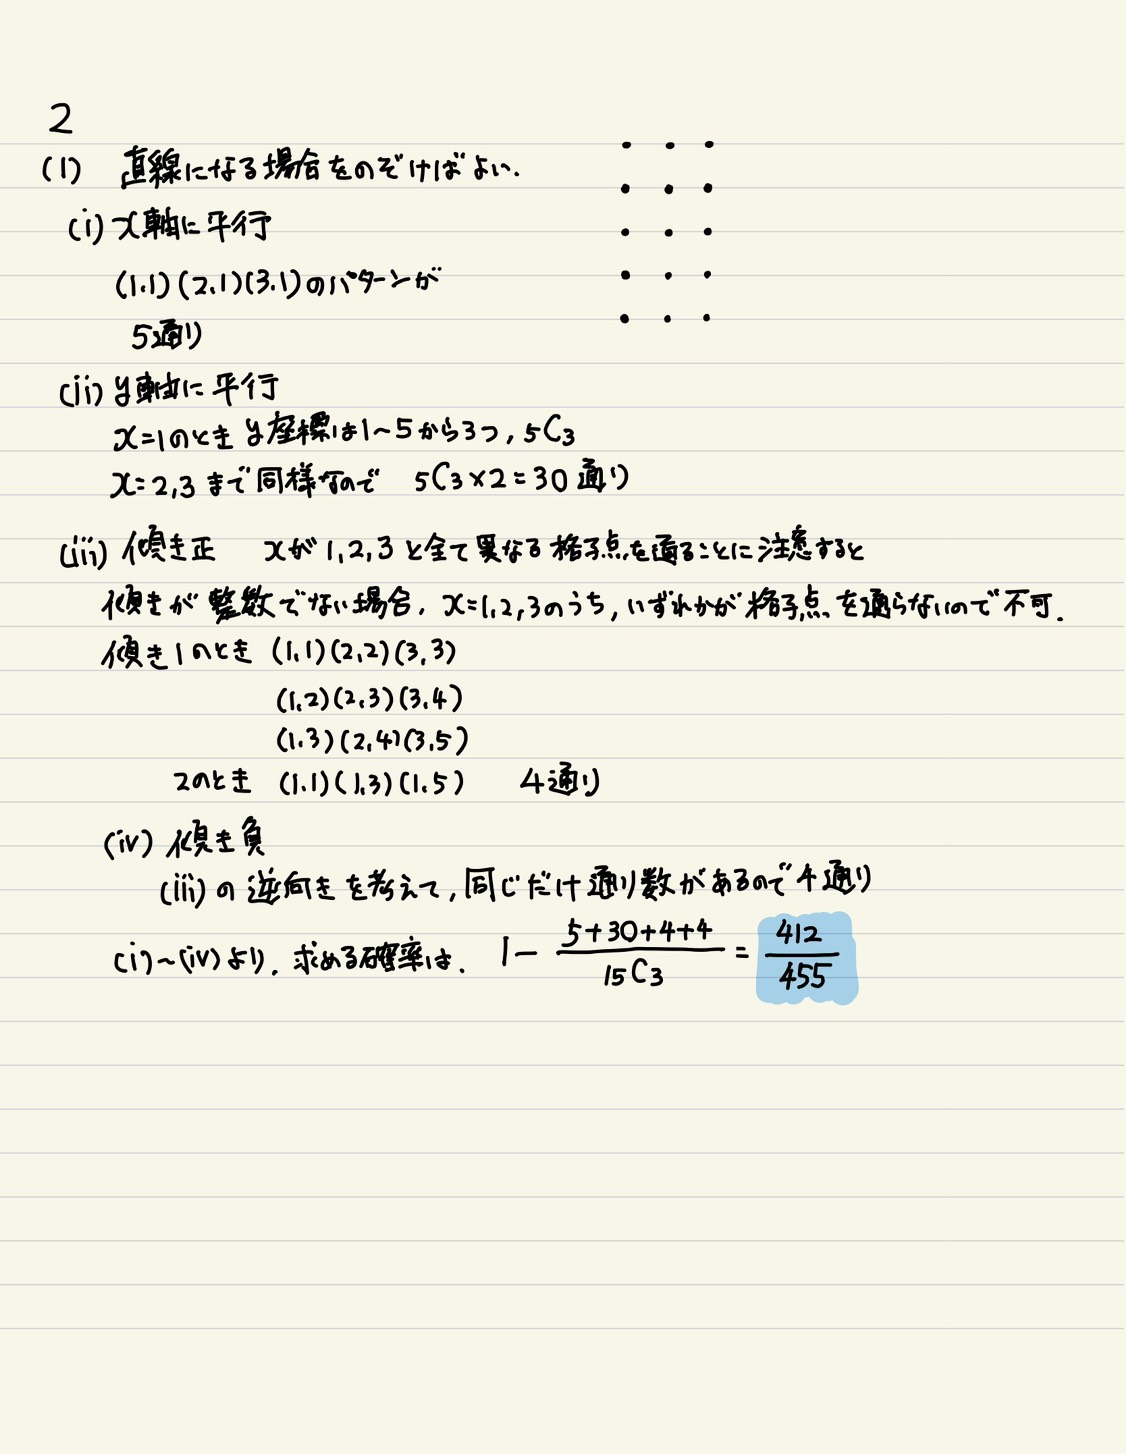 2
(1) 直線になる場合をのぞけばよい.
(i) x軸に平行
(1.1)(2,1)(3.1)のパターンが
5通り
(ii) y軸に平行
x=1のとき y座標は1~5から3つ, 5C3
x=2,3まで同様なので 5C3×2=30通り
(iii) 傾き正 xが1,2,3と全て異なる格子点を通ることに注意すると
傾きが整数でない場合, x=1,2,3のうち, いずれかが格子点を通らないので不可.
傾き1のとき (1,1)(2,2)(3,3)
(1,2)(2,3)(3,4)
(1.3)(2,4)(3,5)
2のとき (1.1)(1,3)(1.5) 4通り
(iv) 傾き負
(iii)の逆向きを考えて, 同じだけ通り数があるので4通り
(i)~(iv)より, 求める確率は. 1- 5+30+4+4/15C3 = 412/455